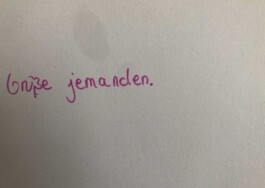 Grüße jemanden.